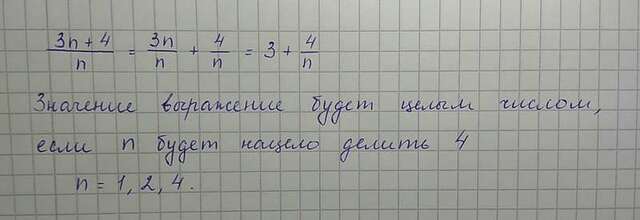 (3n + 4)/n = 3n/n + 4/n = 3 + 4/n
Значение выражение будет целым числом,
если n будет нацело делить 4
n = 1, 2, 4.